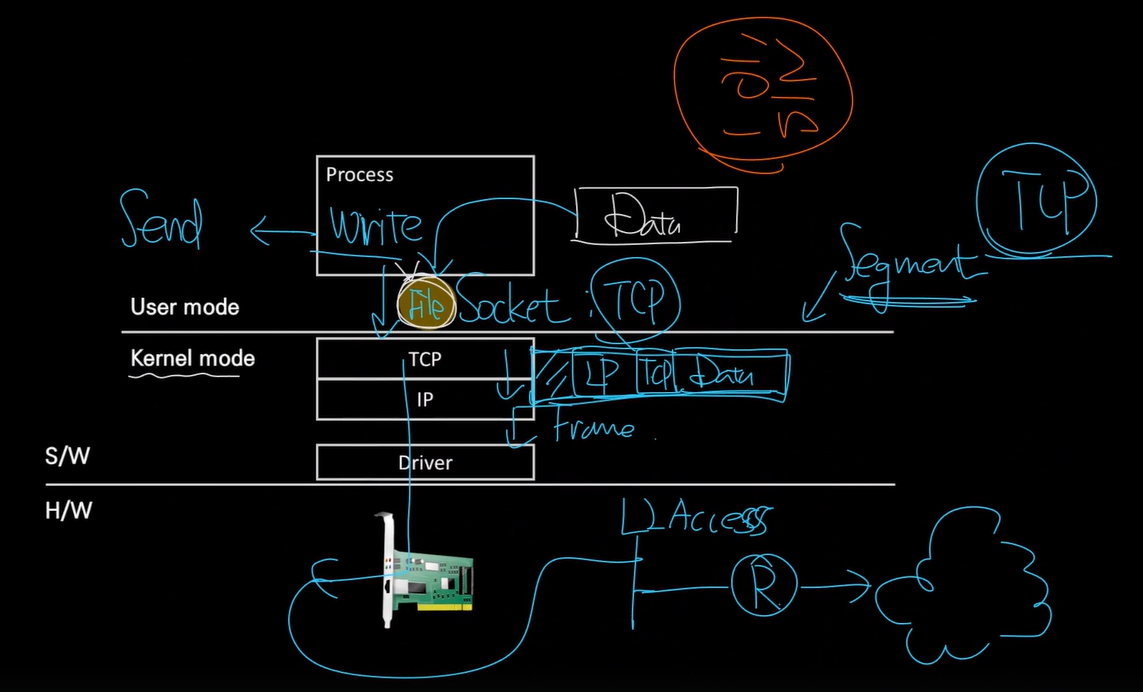 Process
Send
Write
Data
TCP
Segment
User mode
File Socket : TCP
Kernel mode
TCP
IP TCP Data
IP
Frame
S/W
Driver
H/W
L2 Access
R